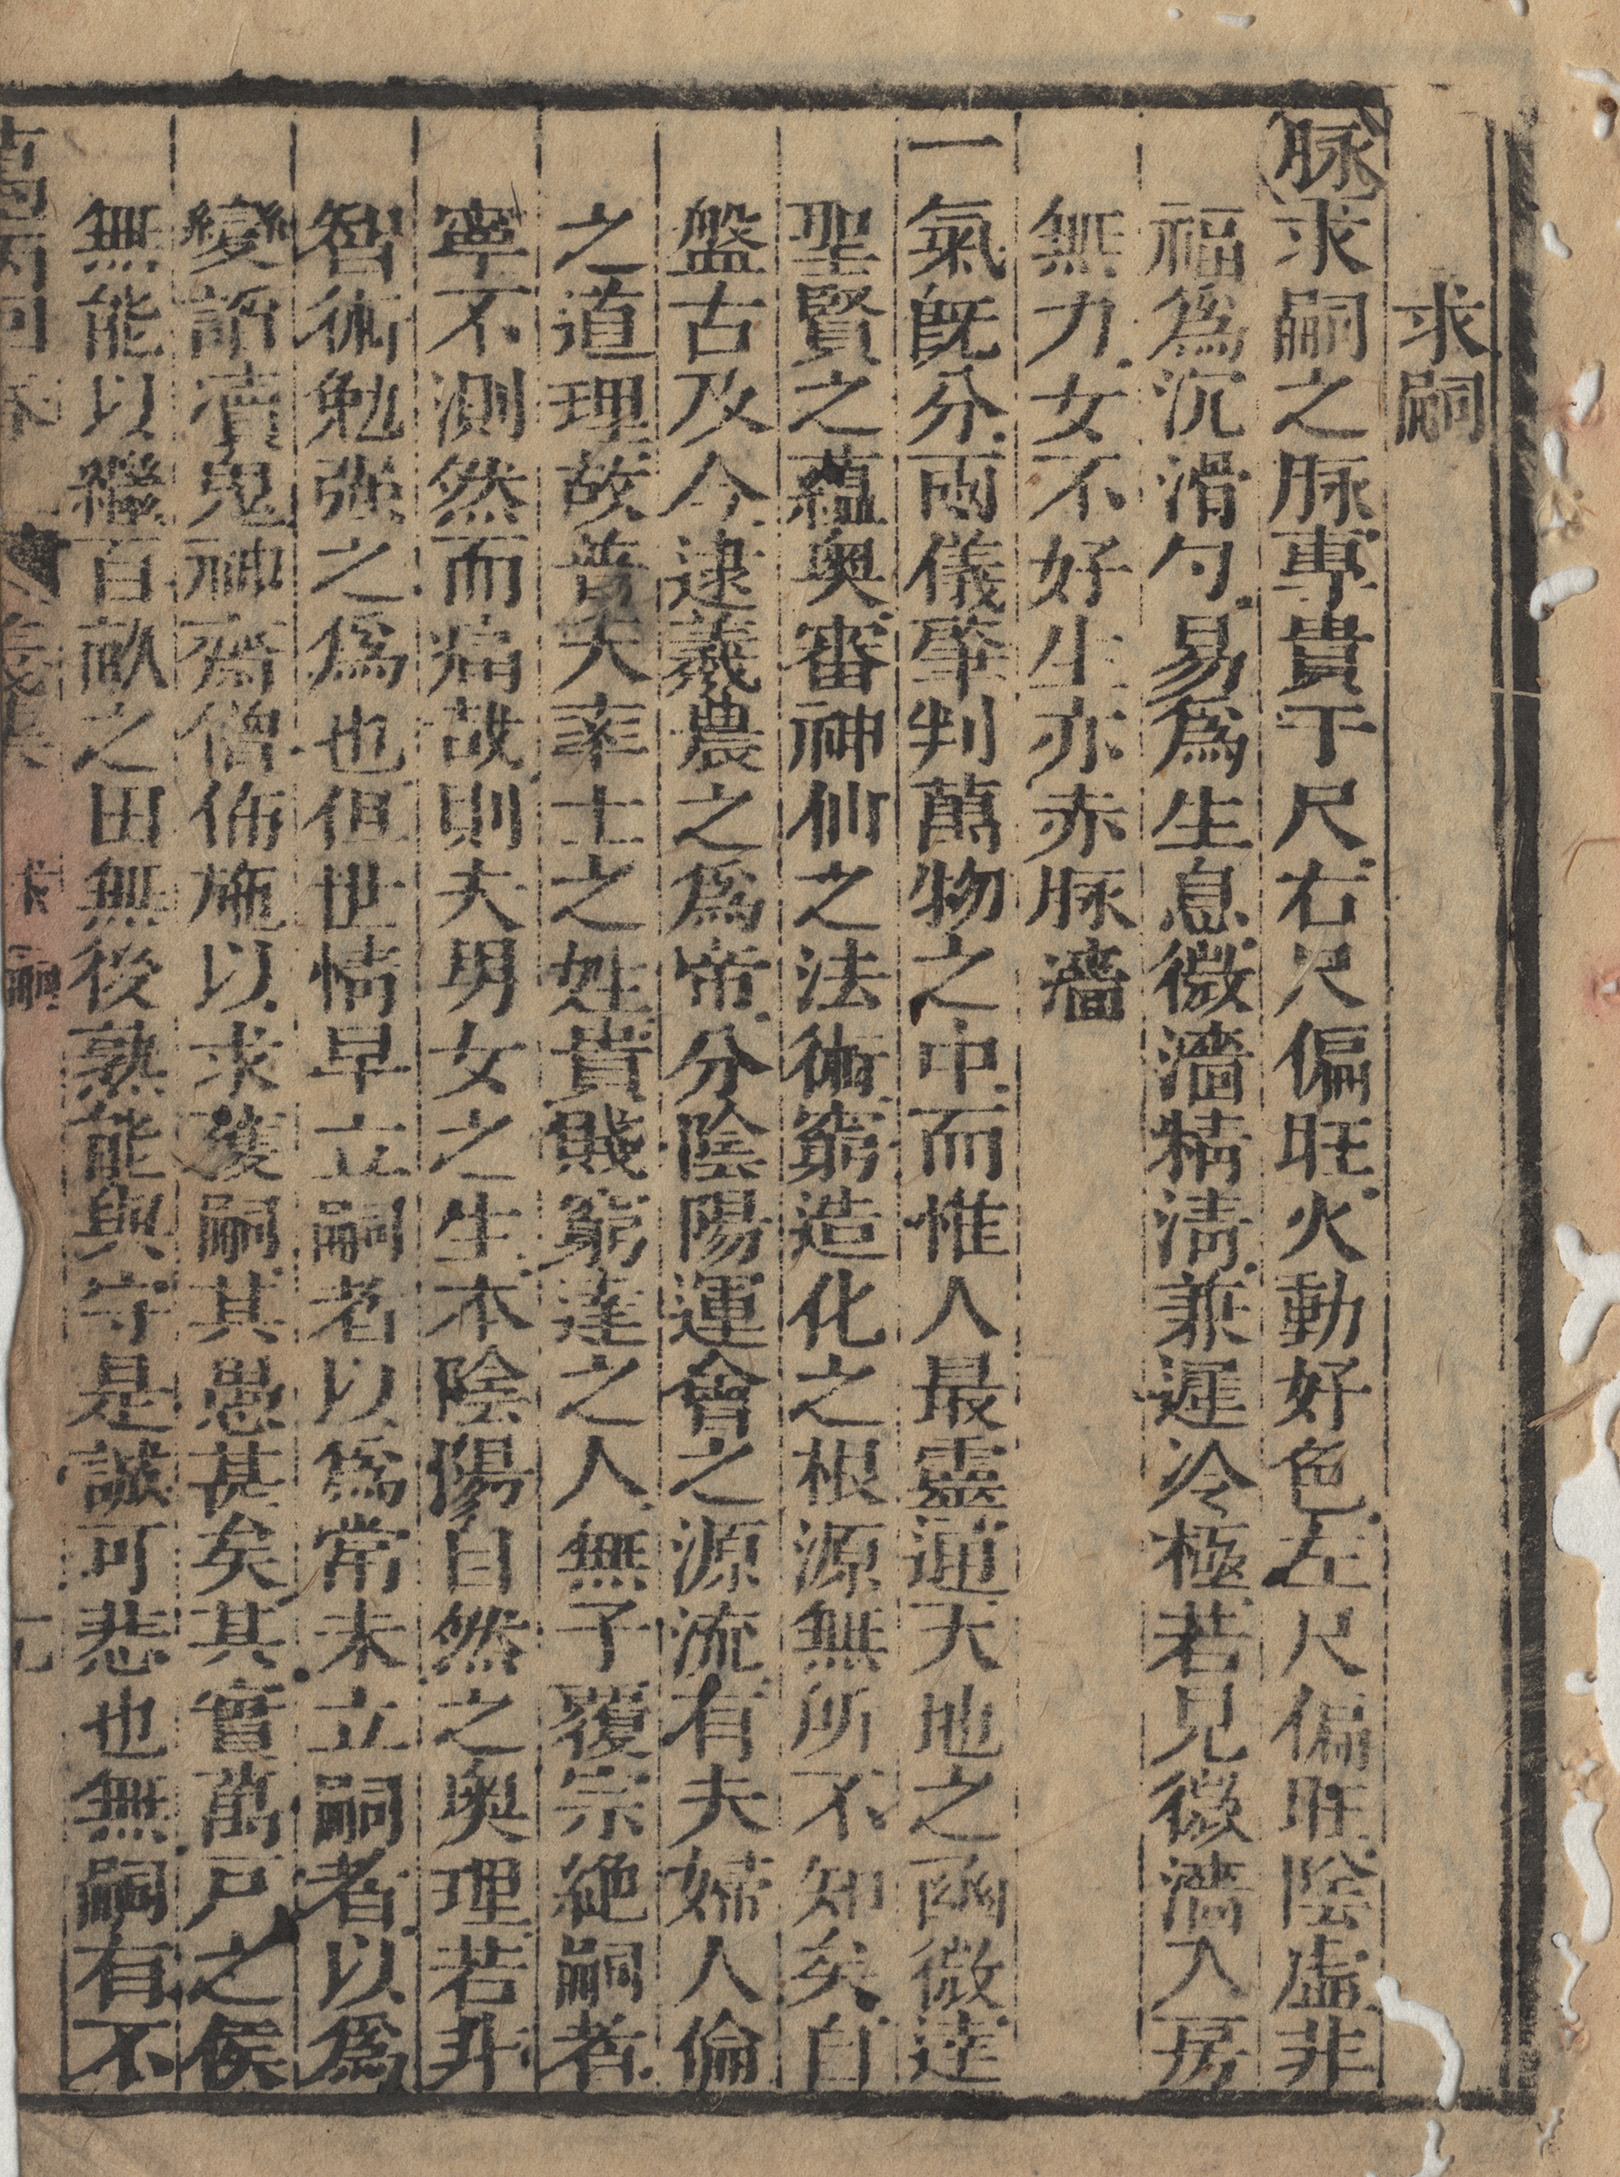 求嗣
脉求嗣之脉專責于尺右尺偏旺火動好色左尺偏旺陰虛非
福爲沉滑匀易爲生息微濇精淸兼遲冷極若見微濇入房
無力女不好生亦赤脉濇
一氣旣分兩儀肇判萬物之中而惟人最靈通天地之函微達
聖賢之蘊奥審神仙之法術窮造化之根源無所不知矣自
盤古及今逮羲農之爲帝分陰陽運會之源流有夫婦人倫
之道理故普天率土之姓貴賤窮達之人無子覆宗絶嗣者
寧不測然而痛哉則夫男女之生本陰陽自然之奥理若非
智術勉强之爲也但世情早立嗣者以爲常未立嗣者以爲
變謟瀆鬼神齋僧佈施以求獲嗣其愚甚矣其實萬戶之侯
無能以繼百畝之田無後孰能與守是誠可悲也無嗣有不
萬病回春 義集 求嗣 九